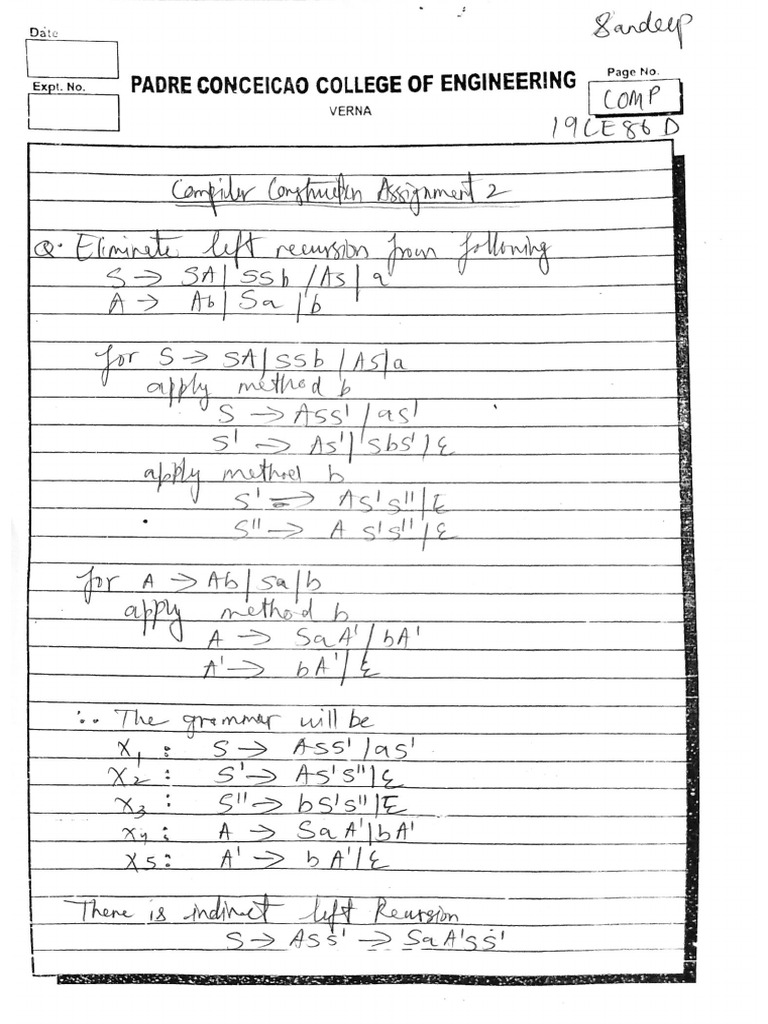 Sandeep
Date
Expt. No.
PADRE CONCEICAO COLLEGE OF ENGINEERING
VERNA
Page No.
COMP
19CE86D
Compiler Construction Assignment 2
Q. Eliminate left recursion from following
S → SA | SSb / AS | a
A → Ab | Sa | b
for S → SA | SSb / AS | a
apply method b
S → ASS' / aS'
S' → AS' | SbS' / ε
apply method b
S' → AS'S'' | ε
S'' → A S'S'' / ε
for A → Ab | Sa | b
apply method b
A → SaA' / bA'
A' → bA' / ε
∴ The grammar will be
X1 : S → ASS' / aS'
X2 : S' → AS'S'' | ε
X3 : S'' → bS'S'' | ε
X4 : A → SaA' | bA'
X5 : A' → bA' | ε
There is indirect left Recursion
S → ASS' → SaA'SS'